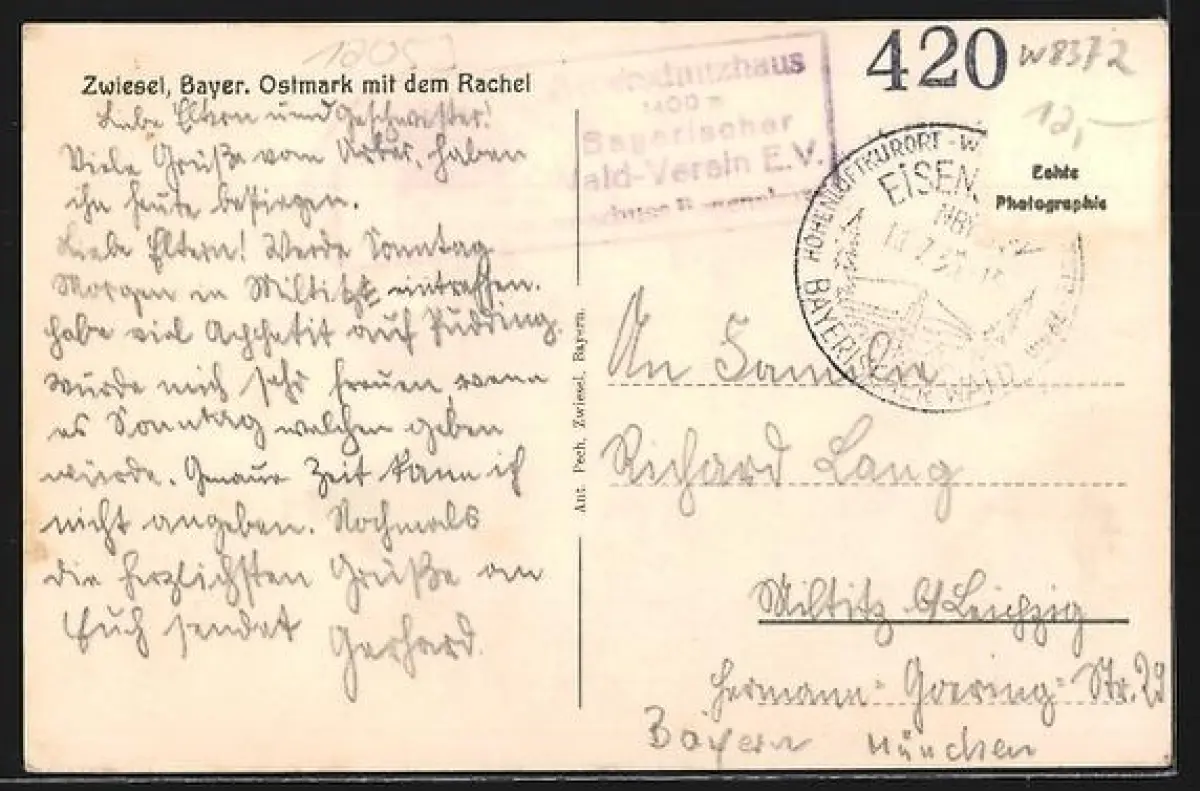 Zwiesel, Bayer. Ostmark mit dem Rachel
Liebe Eltern und Geschwister!
Viele Grüße vom Arber, haben
ihn heute bestiegen.
Liebe Eltern! Werde Sonntag
Morgen in Miltitz eintreffen.
habe viel Appetit auf Pudding.
würde mich sehr freuen, wenn
es Sonntag welchen geben
würde. Genaue Zeit kann ich
nicht angeben. Nochmals
die herzlichsten Grüße an
Euch sendet
Gerhard.
Ant. Pech, Zwiesel, Bayern.
1205
schutzhaus
1400 m
Bayerischer
Wald-Verein E.V.
420
W8372
12,-
Echte
Photographie
HÖHENLUFTKURORT - W
EISEN
BAYERISCHER WALD
An Familie
Richard Lang
Miltitz b/Leipzig
Hermann-Goering-Str. 29
Bayern München